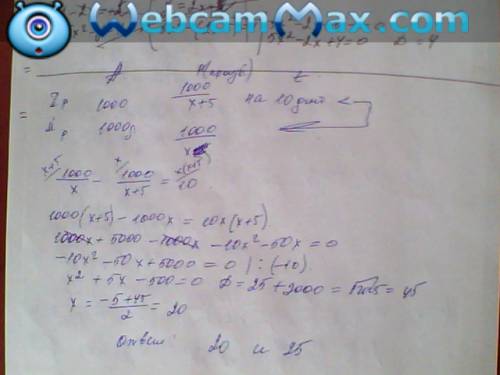 WebcamMax.com
5x² - 2x + 4 = 0
A P(произв) t
I р 1000 1000/(x+5) на 10 дней <
II р 1000 1000/x
x+5/ 1000/x - x/ 1000/(x+5) = x(x+5)/ 10
1000(x+5) - 1000x = 10x(x+5)
1000x + 5000 - 1000x - 10x² - 50x = 0
-10x² - 50x + 5000 = 0 | : (-10)
x² + 5x - 500 = 0 D = 25 + 2000 = √2025 = 45
x = (-5+45)/2 = 20
Ответ: 20 и 25